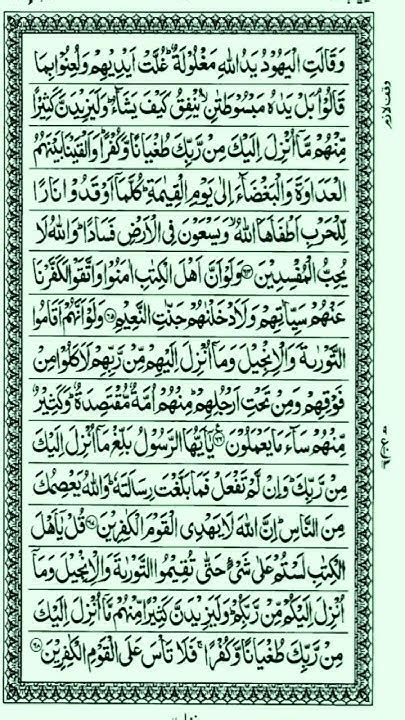 وَقَالَتِ الْيَهُوْدُ يَدُ اللّٰهِ مَغْلُوْلَةٌ ؕ غُلَّتْ اَيْدِيْهِمْ وَلُعِنُوْا بِمَا
قَالُوْا ۘ بَلْ يَدٰهُ مَبْسُوْطَتٰنِ ۙ يُنْفِقُ كَيْفَ يَشَآءُ ؕ وَلَيَزِيْدَنَّ كَثِيْرًا
مِّنْهُمْ مَّاۤ اُنْزِلَ اِلَيْكَ مِنْ رَّبِّكَ طُغْيَانًا وَّكُفْرًا ؕ وَاَلْقَيْنَا بَيْنَهُمُ
الْعَدَاوَةَ وَالْبَغْضَآءَ اِلٰى يَوْمِ الْقِيٰمَةِ ؕ كُلَّمَاۤ اَوْقَدُوْا نَارًا
لِّلْحَرْبِ اَطْفَاَهَا اللّٰهُ ۙ وَيَسْعَوْنَ فِى الْاَرْضِ فَسَادًا ؕ وَاللّٰهُ لَا
يُحِبُّ الْمُفْسِدِيْنَ ۝۶۴ وَلَوْ اَنَّ اَهْلَ الْكِتٰبِ اٰمَنُوْا وَاتَّقَوْا لَكَفَّرْنَا
عَنْهُمْ سَيِّاٰتِهِمْ وَلَاَدْخَلْنٰهُمْ جَنّٰتِ النَّعِيْمِ ۝۶۵ وَلَوْ اَنَّهُمْ اَقَامُوا
التَّوْرٰىةَ وَالْاِنْجِيْلَ وَمَاۤ اُنْزِلَ اِلَيْهِمْ مِّنْ رَّبِّهِمْ لَاَكَلُوْا مِنْ
فَوْقِهِمْ وَمِنْ تَحْتِ اَرْجُلِهِمْ ؕ مِنْهُمْ اُمَّةٌ مُّقْتَصِدَةٌ ؕ وَكَثِيْرٌ
مِّنْهُمْ سَآءَ مَا يَعْمَلُوْنَ ۝۶۶ يٰۤاَيُّهَا الرَّسُوْلُ بَلِّغْ مَاۤ اُنْزِلَ اِلَيْكَ
مِنْ رَّبِّكَ ؕ وَاِنْ لَّمْ تَفْعَلْ فَمَا بَلَّغْتَ رِسَالَتَهٗ ؕ وَاللّٰهُ يَعْصِمُكَ
مِنَ النَّاسِ ؕ اِنَّ اللّٰهَ لَا يَهْدِى الْقَوْمَ الْكٰفِرِيْنَ ۝۶۷ قُلْ يٰۤاَهْلَ
الْكِتٰبِ لَسْتُمْ عَلٰى شَىْءٍ حَتّٰى تُقِيْمُوا التَّوْرٰىةَ وَالْاِنْجِيْلَ وَمَاۤ
اُنْزِلَ اِلَيْكُمْ مِّنْ رَّبِّكُمْ ؕ وَلَيَزِيْدَنَّ كَثِيْرًا مِّنْهُمْ مَّاۤ اُنْزِلَ اِلَيْكَ
مِنْ رَّبِّكَ طُغْيَانًا وَّكُفْرًا ۚ فَلَا تَاْسَ عَلَى الْقَوْمِ الْكٰفِرِيْنَ ۝۶۸
وقف لازم